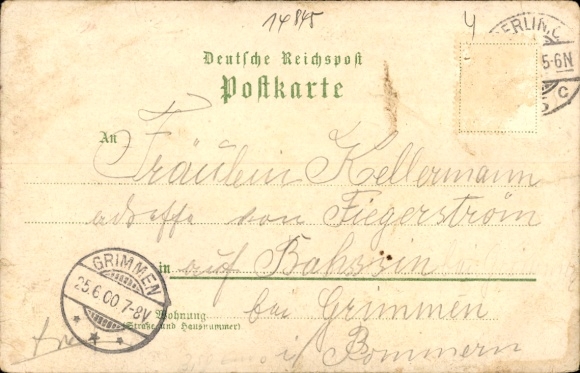 14845
4
BERLIN, C
5-6N
C
Deutsche Reichspost
Postkarte
An Fräulein Kellermann
adresse von Fiegerström
in auf Bahssin
bei Grimmen
Wohnung
(Straße und Hausnummer)
i/ Pommern
GRIMMEN
25.6.00 7-8V